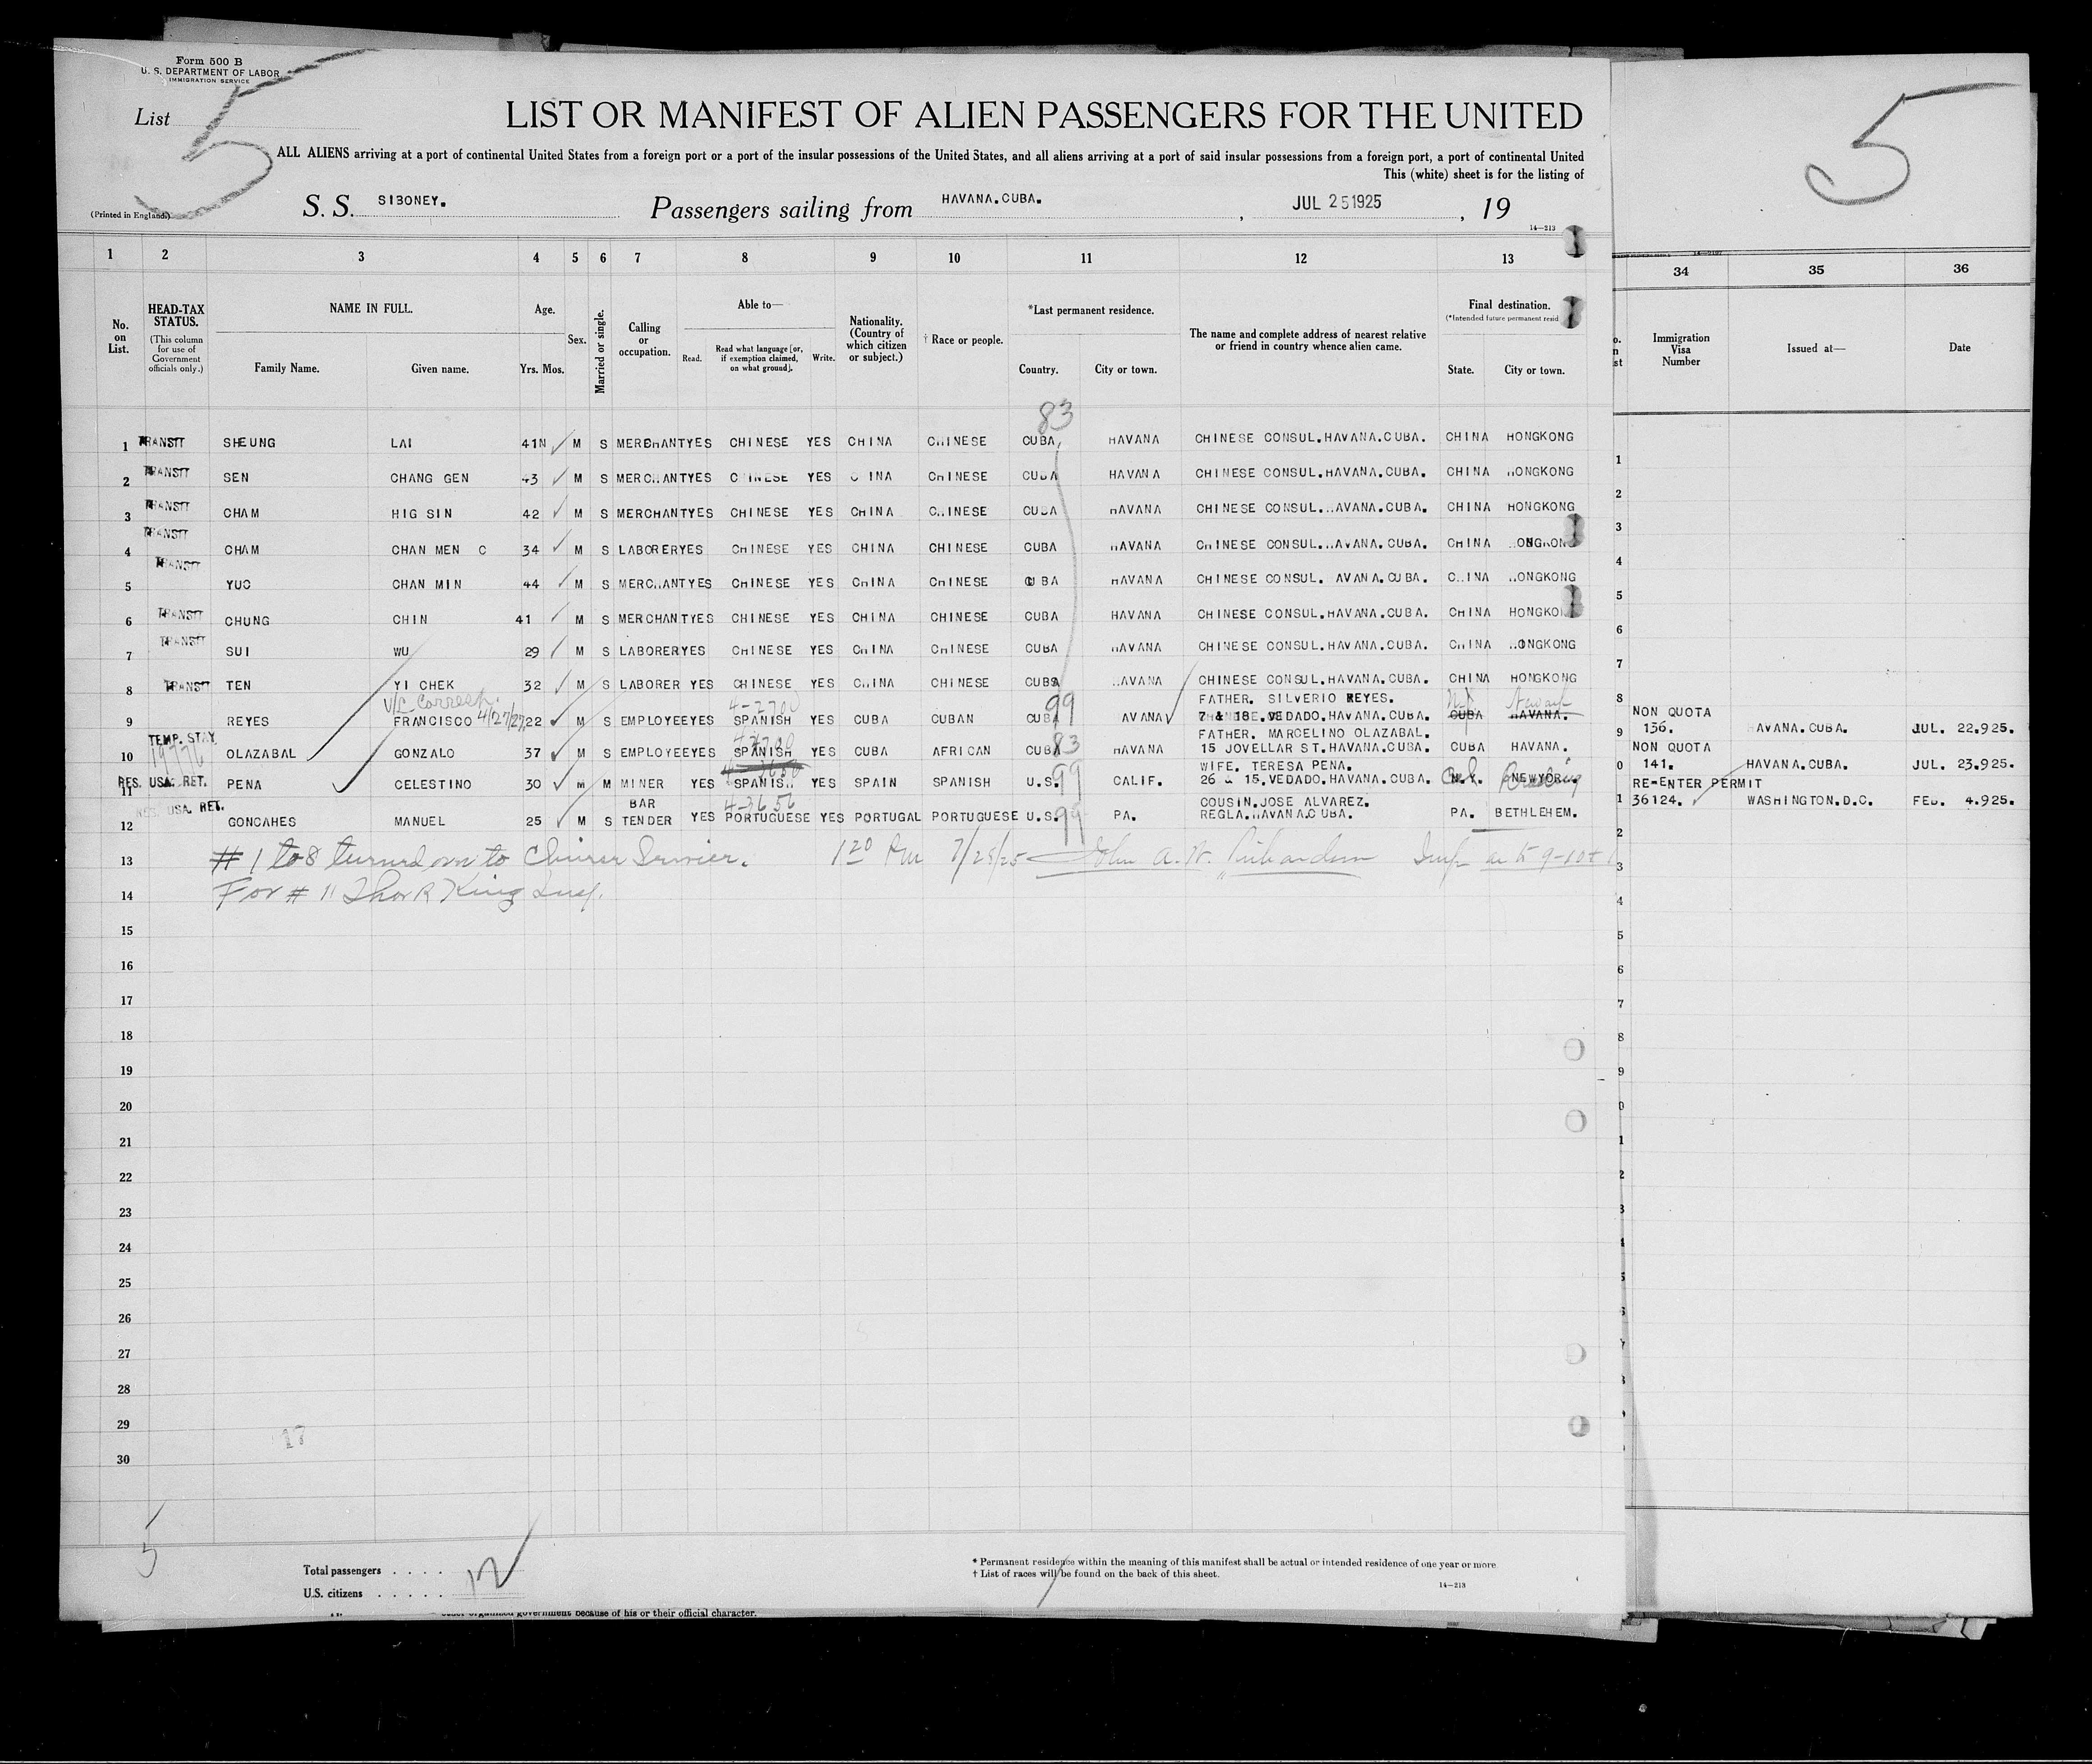 Form 500 B
U. S. DEPARTMENT OF LABOR
IMMIGRATION SERVICE
List
5
5
LIST OR MANIFEST OF ALIEN PASSENGERS FOR THE UNITED
ALL ALIENS arriving at a port of continental United States from a foreign port or a port of the insular possessions of the United States, and all aliens arriving at a port of said insular possessions from a foreign port, a port of continental United
This (white) sheet is for the listing of
(Printed in England.)
S. S. SIBONEY. Passengers sailing from HAVANA.CUBA. , JUL 25 1925 , 19
14—213
1 2 3 4 5 6 7 8 9 10 11 12 13 34 35 36
No. on List.
HEAD-TAX STATUS.
(This column for use of Government officials only.)
NAME IN FULL.
Family Name. Given name.
Age.
Yrs. Mos.
Sex.
Married or single.
Calling or occupation.
Able to—
Read. Read what language [or, if exemption claimed, on what ground]. Write.
Nationality. (Country of which citizen or subject.)
† Race or people.
*Last permanent residence.
Country. City or town.
The name and complete address of nearest relative or friend in country whence alien came.
Final destination.
(*Intended future permanent resid
State. City or town.
Immigration Visa Number
Issued at—
Date
83
1 TRANSIT SHEUNG LAI 41 M S MERCHANT YES CHINESE YES CHINA CHINESE CUBA HAVANA CHINESE CONSUL.HAVANA.CUBA. CHINA HONGKONG
2 TRANSIT SEN CHANG GEN 43 M S MERCHANT YES CHINESE YES CHINA CHINESE CUBA HAVANA CHINESE CONSUL.HAVANA.CUBA. CHINA HONGKONG
3 TRANSIT CHAM HIG SIN 42 M S MERCHANT YES CHINESE YES CHINA CHINESE CUBA HAVANA CHINESE CONSUL.HAVANA.CUBA. CHINA HONGKONG
4 TRANSIT CHAM CHAN MEN C 34 M S LABORER YES CHINESE YES CHINA CHINESE CUBA HAVANA CHINESE CONSUL.HAVANA.CUBA. CHINA HONGKONG
5 TRANSIT YUO CHAN MIN 44 M S MERCHANT YES CHINESE YES CHINA CHINESE CUBA HAVANA CHINESE CONSUL. AVANA.CUBA. CHINA HONGKONG
6 TRANSIT CHUNG CHIN 41 M S MERCHANT YES CHINESE YES CHINA CHINESE CUBA HAVANA CHINESE CONSUL.HAVANA.CUBA. CHINA HONGKONG
7 TRANSIT SUI WU 29 M S LABORER YES CHINESE YES CHINA CHINESE CUBA HAVANA CHINESE CONSUL.HAVANA.CUBA. CHINA HONGKONG
8 TRANSIT TEN YI CHEK 32 M S LABORER YES CHINESE YES CHINA CHINESE CUBA HAVANA CHINESE CONSUL.HAVANA.CUBA. CHINA HONGKONG
V/L 4/27/27 4-2700 99 FATHER. SILVERIO REYES. N.Y.
9 REYES FRANCISCO 22 M S EMPLOYEE YES SPANISH YES CUBA CUBAN CUBA AVANA 7 & 18.VEDADO.HAVANA.CUBA. CUBA HAVANA. NON QUOTA 136. HAVANA.CUBA. JUL. 22.925.
TEMP. STAY 83 FATHER. MARCELINO OLAZABAL.
10 OLAZABAL GONZALO 37 M S EMPLOYEE YES SPANISH YES CUBA AFRICAN CUBA HAVANA 15 JOVELLAR ST.HAVANA.CUBA. CUBA HAVANA. NON QUOTA 141. HAVANA.CUBA. JUL. 23.925.
RES. USA. RET. 99 WIFE. TERESA PENA.
11 PENA CELESTINO 30 M M MINER YES SPANISH YES SPAIN SPANISH U.S. CALIF. 26 & 15.VEDADO.HAVANA.CUBA. N.Y. NEWYORK. RE-ENTER PERMIT 36124. WASHINGTON.D.C. FEB. 4.925.
RES. USA. RET. 4-3656 99 COUSIN.JOSE ALVAREZ.
12 GONCAHES MANUEL 25 M S BAR TENDER YES PORTUGUESE YES PORTUGAL PORTUGUESE U.S. PA. REGLA.HAVANA.CUBA. PA. BETHLEHEM.
13 # 1 to 8 turned over to Chinese Service. 1 20 PM 7/28/25 John A. W. Richardson Insp as to 9-10+
14 For # 11 Thor R King Insp.
15
16
17
18
19
20
21
22
23
24
25
26
27
28
29
30
5
Total passengers . . . . 12
U.S. citizens . . . . .
* Permanent residence within the meaning of this manifest shall be actual or intended residence of one year or more
† List of races will be found on the back of this sheet.
14—213
government because of his or their official character.